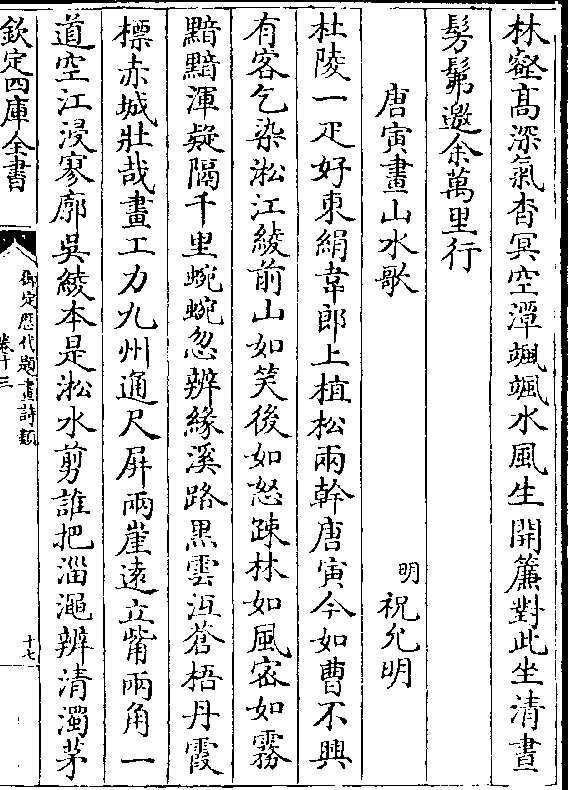 林壑髙深氣杳冥空潭颯颯水風生開簾對此坐清晝
髣髴邀余萬里行
唐寅畫山水歌
明祝允明
杜陵一疋好東絹韋郎上植松兩幹唐寅今如曹不興
有客乞染淞江綾前山如笑後如怒疎林如風宻如霧
黯黯渾疑隔千里蜿蜿忽辨緣溪路黒雲沍蒼梧丹霞
標赤城壯哉畫工力九州通尺屏兩崖逺立觜兩角一
道空江浸寥廓吳綾本是淞水剪誰把淄澠辨清濁茅
欽定四庫全書
御定歴代題畫詩類
卷十三
十七